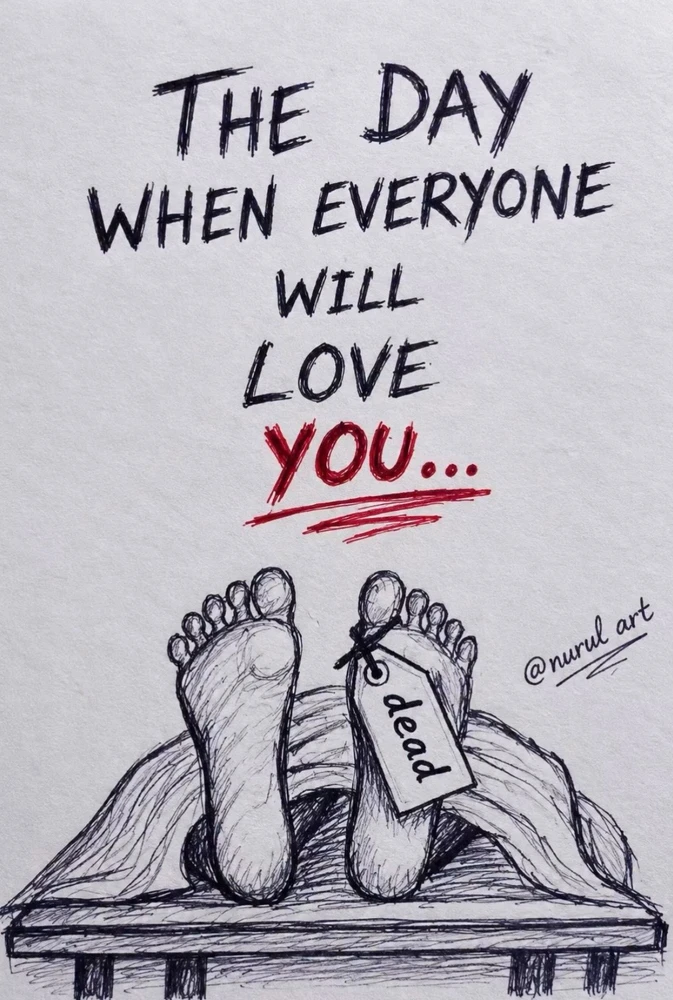 THE DAY
WHEN EVERYONE
WILL
LOVE
YOU...
@nurul art
dead